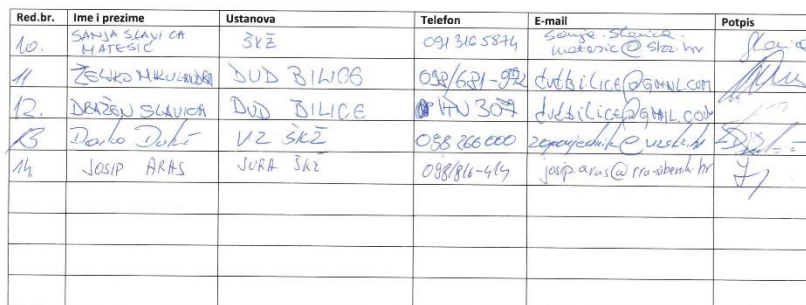 Red.br. Ime i prezime Ustanova Telefon E-mail Potpis
10. SANJA SLAVICA MATESIC ŠKŽ 091 316 5874 sanja.slavica.matesic@skz.hr
11 ŽELJKO MIKULANDRA DVD BILICE 098/681-992 dvdbilice@GMAIL.COM
12. DRAŽEN SLAVICA DVD BILICE HV 307 dvdbilice@GMAIL.COM
13 Darko Dukić VZ ŠKŽ 098 266000 zapovjednik@vzskz.hr
14. JOSIP ARAS JURA ŠKŽ 098/816-414 josip.aras@rra-sibenik.hr